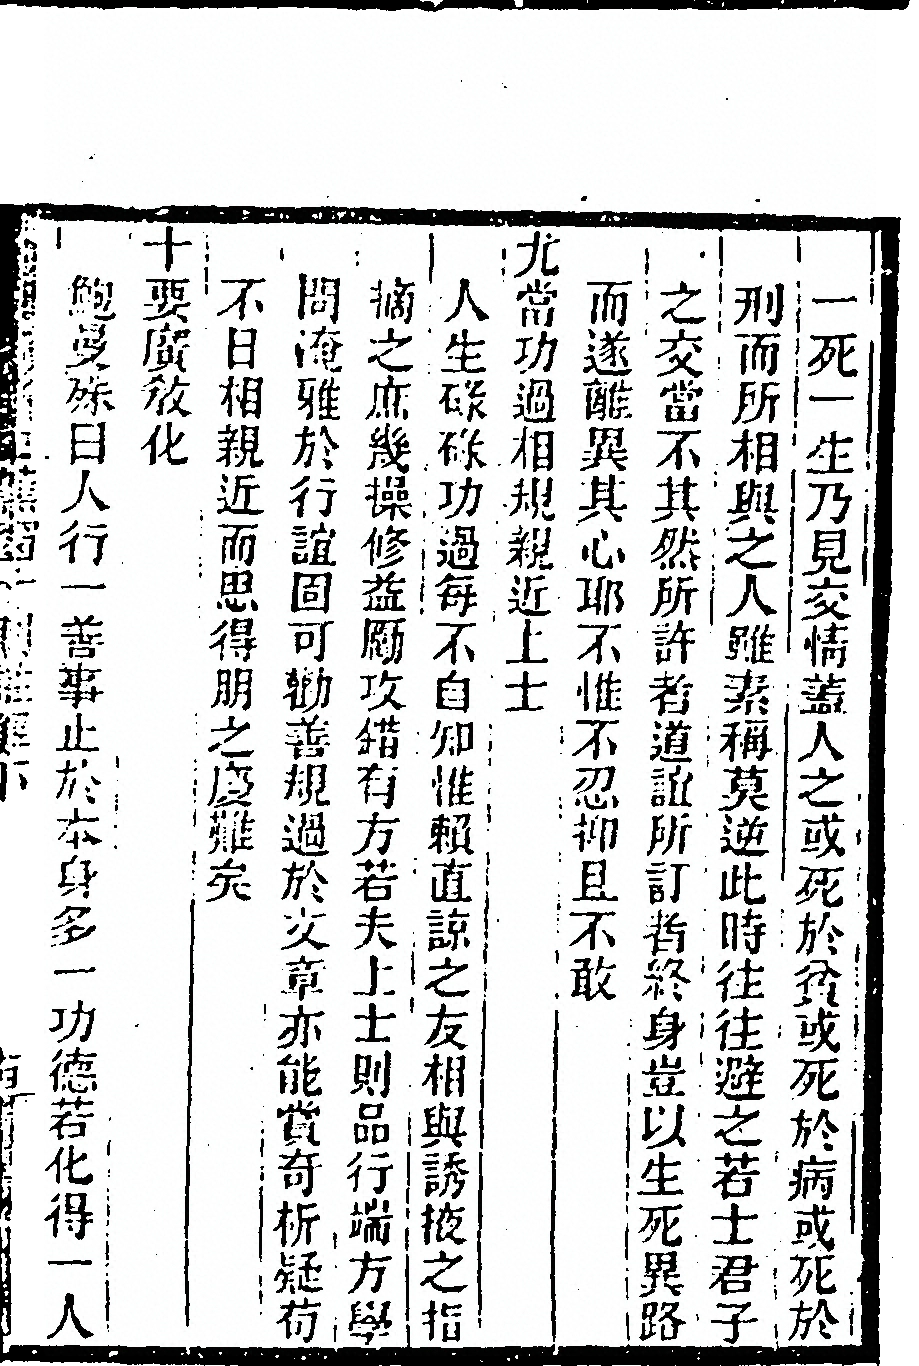 一死一生乃見交情蓋人之或死於貧或死於病或死於
刑而所相與之人雖素稱莫逆此時往往避之若士君子
之交當不其然所許者道誼所訂者終身豈以生死異路
而遂離異其心耶不惟不忍抑且不敢
尤當功過相規親近上士
人生碌碌功過每不自知惟賴直諒之友相與誘掖之指
摘之庶幾操修益勵攻錯有方若夫上士則品行端方學
問淹雅於行誼固可勸善規過於文章亦能賞奇析疑苟
不日相親近而思得朋之慶難矣
十要廣敎化
鮑曼殊曰人行一善事止於本身多一功德若化得一人